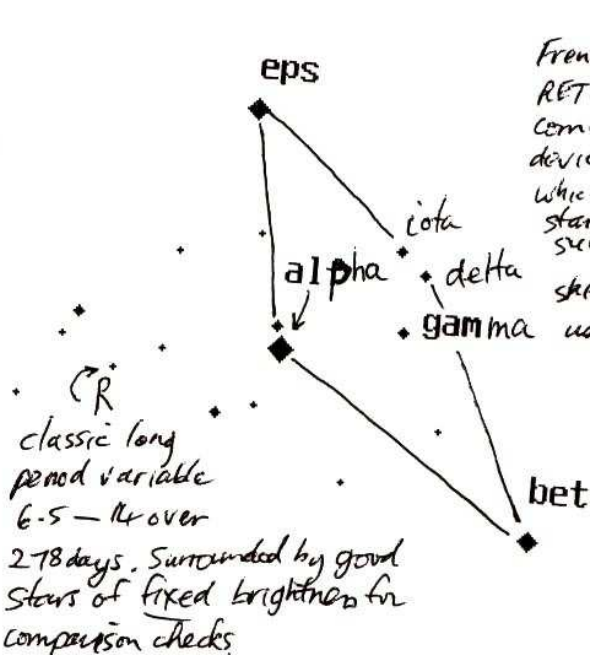 eps
Fren
RET
com
devic
whic
star
iota
alpha
delta
ske
gamma
R
classic long
period variable
6.5 – 14 over
bet
278 days. Surrounded by good
stars of fixed brightness for
comparison checks